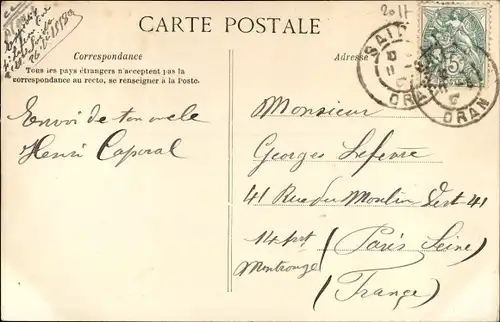 CARTE POSTALE
2011
Correspondance
Tous les pays étrangers n'acceptent pas la
correspondance au recto, se renseigner à la Poste.
Adresse
SAI
ORAN
ORAN
5
Envoi de ton oncle
Henri Caporal
Monsieur
Georges Lefevre
41 Rue du Moulin Vert 41
14 Arrt (Paris Seine)
Montrouge
(France)